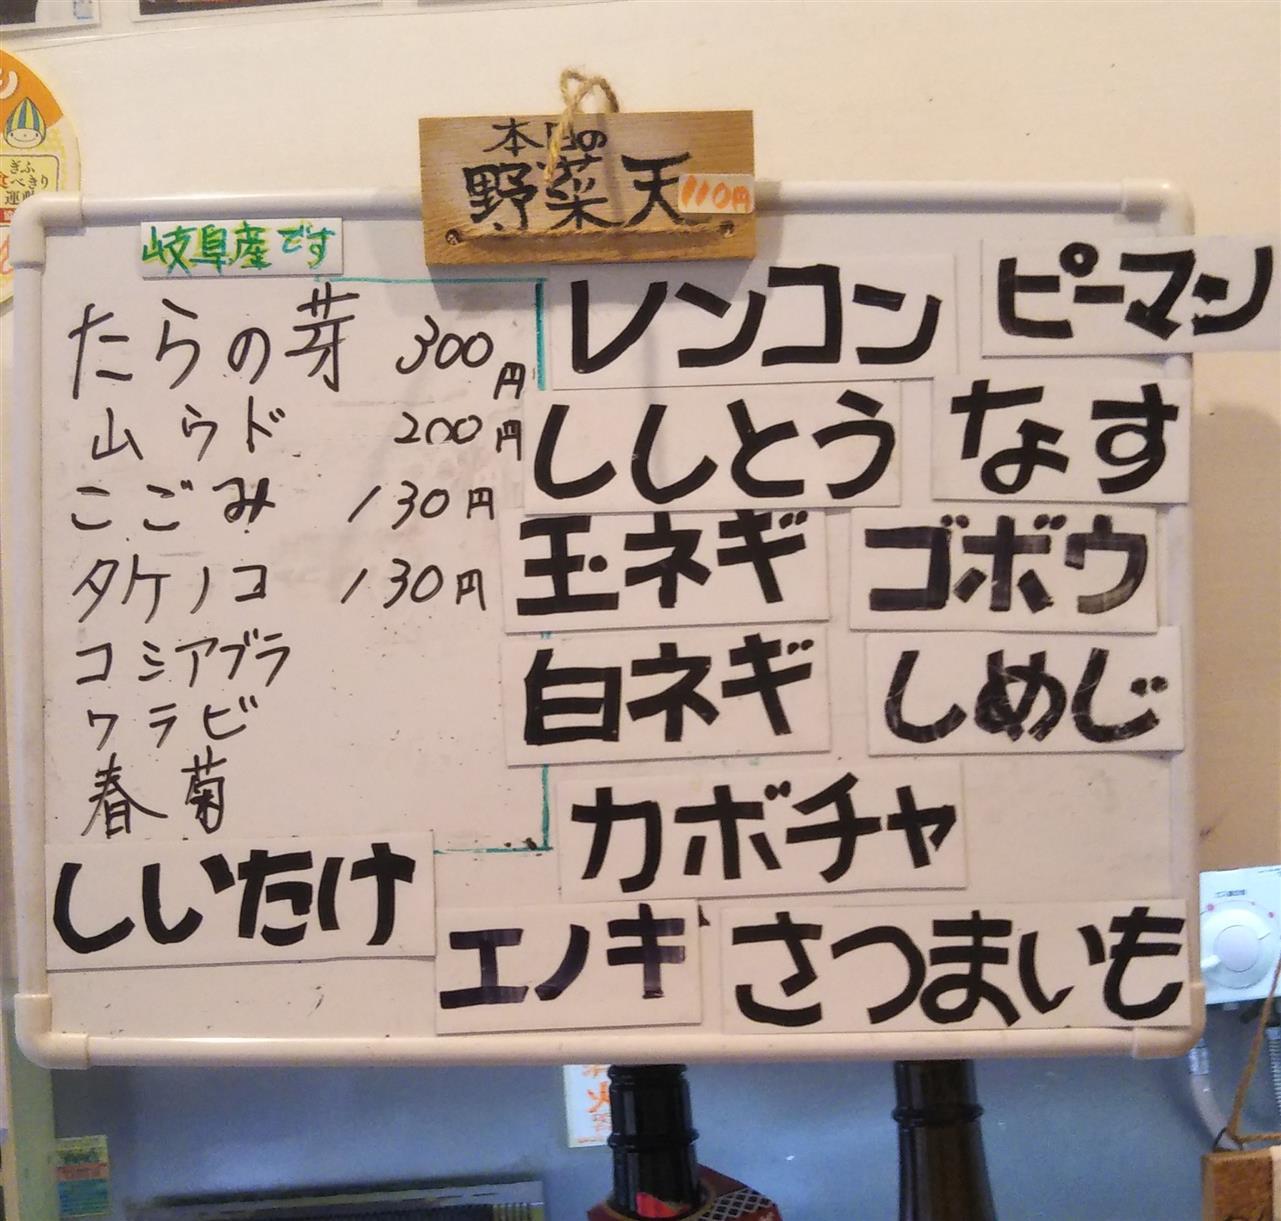 本日の
野菜天
110円
岐阜産です
たらの芽 300円
山ウド 200円
こごみ 130円
タケノコ 130円
コシアブラ
ワラビ
春菊
しいたけ
レンコン
ピーマン
ししとう
なす
玉ネギ
ゴボウ
白ネギ
しめじ
カボチャ
エノキ
さつまいも
ぎふ
べきり